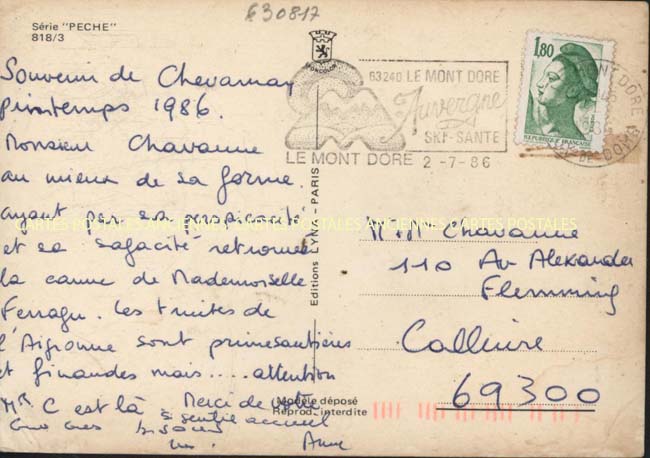 630817
Série "PECHE"
818/3
Souvenir de Chevarnay
Printemps 1986.
Monsieur Chavanne
au mieux de sa forme
ayant par sa perspicacité
et sa sagacité retrouvée
la canne de Mademoiselle
Ferragu. les truites de
l'Aigronne sont primesautières
et friandes mais..... attention
Mr C est là Merci de votre
si gentil accueil
Gros Gros bisous
Anne
Editions LYNA - PARIS
Modèle déposé
Reprod. interdite
63240 LE MONT DORE
Auvergne
SKI-SANTE
LE MONT DORE 2-7-86
1,80
REPUBLIQUE FRANÇAISE
MONT DORE
PUY-DE-DOME
CARTES POSTALES ANCIENNES CARTES POSTALES ANCIENNES CARTES POSTALES
M. Mr Chavanne
110 Av Alexander
Flemming
Calluire
69300